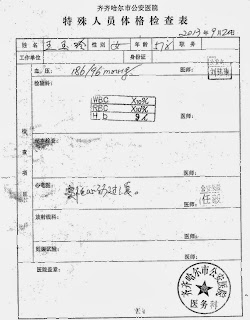 齐齐哈尔市公安医院
特殊人员体格检查表
2013年9月2日
姓名 王玉玲 性别 女 年龄 57岁 职务
工作单位 身份证
血压: 186/96 mmHg 医师:
检验科:
WBC X10⁹/L
RBC X10¹²/L
Hb g/L
医师:
检查项目
医师:
心电图:
窦性心动过缓。
医师:
放射线科:
医师:
妊娠试验:
医师:
医院盖章:
齐齐哈尔市公安医院
医务科